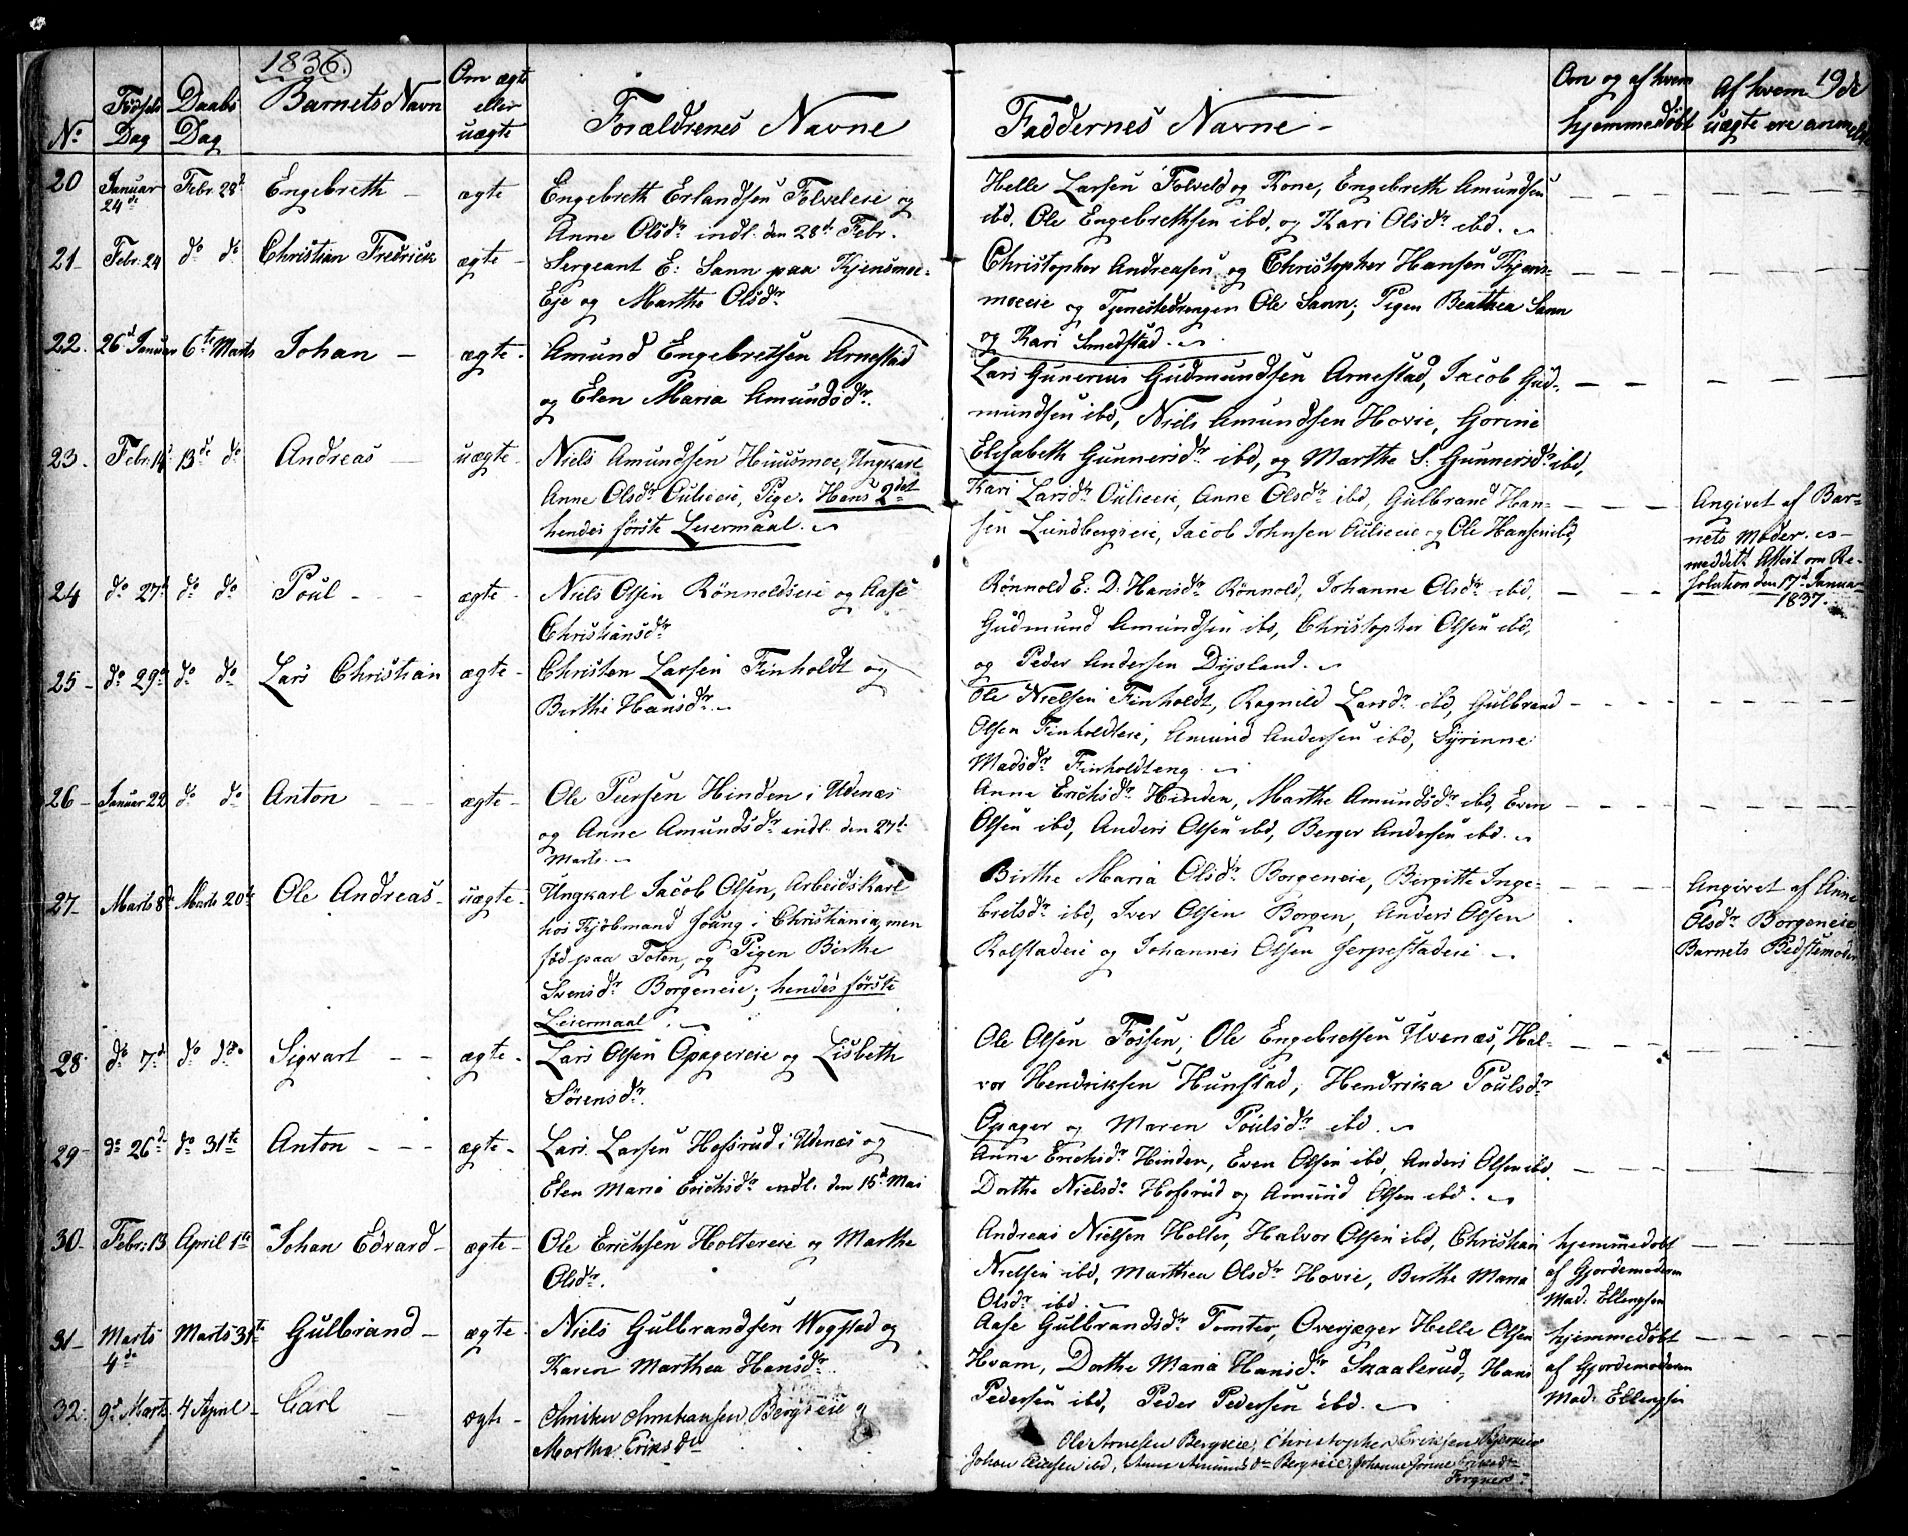 1836.
No Fødsels Dag Daabs Dag Barnets Navn Om ægte eller uægte Forældrenes Navne
Faddernes Navne - Om og af hvem hjemmedøbt Af hvem uægte ere
19
20 Januar 24de Febr. 28d Engebreth - ægte Engebreth Erlandsen Folveleie og
Anne Olsdr indl. den 28d Febr.
Helle Larsen Folveld og Kone, Engebreth Amundsen
ibd. Ole Engebrethsen ibd, og Kari Olsdr ibd.
21- Febr. 24 do do Christian Fredrick ægte - Sergeant E: Sann paa Kjensmoe-
Eje og Marthe Olsdr
Christopher Andreasen og Christopher Hansen Kjens-
moeeie og Tjenestedrengen Ole Sann; Pigen Beathea Sann
og Kari Smedstad.
22. 26d Januar 6te Marts Johan - ægte - Amund Engebretsen Arnestad
og Elen Maria Amundsdr.
Lars Gunerius Gudmundsen Arnestad, Jacob Gud-
mundsen ibd, Niels Amundsen Hovie, Gorine
Elisabeth Gunnersdr ibd, og Marthe S. Gunnersdr ibd,
23. Febr. 14d 13de do Andreas - uægte - Niels Amundsen Huusmoe, Ungkarl
Anne Olsdr Oulieeie, Pige. Hans 2det
hendes første Leiermaal.
Kari Larsdr Oulieeie, Anne Olsdr ibd, Gulbrand Han-
sen Lundbergseie, Jacob Johnsen Oulieeie og Ole Hansen ibd,
Angivet af Bar-
nets Moder.
meddelt Attest om Re-
solution den 17d Januar
1837.
24 do 27d do do Poul - - - ægte - Niels Olsen Rønnoldseie og Aase
Christiansdr
Rønnold E: D: Hansdr Rønnold, Johanne Olsdr ibd,
Gudmund Amundsen ibd, Christopher Olsen ibd,
og Peder Andersen Dysland.
25 - do 29d do do Lars Christian ægte - Christen Larsen Finholdt og
Birthe Hansdr.
Ole Nielsen Finholdt, Ragnild Larsdr ibd, Gulbrand
Olsen Finholdteie, Amund Andersen ibd, Syrinne
Madsdr Finholdteng.
26 - Januar 22 do do Anton - - ægte - Ole Persen Hinden i Udenæs
og Anne Amundsdr indl. den 27d
Marts.
Anne Erichsdr Hinden, Marthe Amundsdr ibd, Even
Olsen ibd, Anders Olsen ibd, Berger Andersen ibd.
27 - Marts 8d Marts 20de Ole Andreas - uægte - Ungkarl Jacob Olsen, Arbeidskarl
hos Kjøbmand Joung i Christiania, men
fød paa Toten, og Pigen Birthe
Svensdr Borgeneie; hendes første
Leiermaal.
Birthe Maria Olsdr Borgeneie, Birgitte Inge-
bretsdr ibd, Iver Olsen Borgen, Anders Olsen
Rolstadeie og Johannes Olsen Jerpestadeie
Angivet af Anne
Olsdr Borgeneie
Barnets Bedstemoder
28. do 7d do do Sigvart - - ægte - Lars Olsen Opagereie og Lisbeth
Sørensdr.
Ole Olsen Fossen, Ole Engebretsen Uvenæs, Hal-
vor Hendriksen Hunstad, Hendrika Poulsdr
Opager og Maren Poulsdr ibd.
29- do 26d do 31te Anton - - - ægte - Lars Larsen Hofsrud i Udenæs og
Elen Maria Erichsdr indl. den 15d Mai
Anne Erichsdr Hinden, Even Olsen ibd, Anders Olsen ibd.
Dorthe Nielsdr Hofsrud og Amund Olsen ibd.
30- Febr. 13 April 1te Johan Edvard - ægte - Ole Erichsen Holtereie og Marthe
Olsdr.
Andreas Nielsen Holter, Halvor Olsen ibd, Christian
Nielsen ibd, Marthea Olsdr Hovie, Berthe Maria
Olsdr ibd.
hjemmedøbt
af Gjordemoderen
Mad: Ellengsen
31- Marts 4de Marts 31te Gulbrand - ægte - Niels Gulbrandsen Wogstad og
Karen Marthea Hansdr.
Aase Gulbrandsdr Tomter, Overjæger Helle Olsen
Hvam, Dorthe Maria Hansdr Skaalerud, Hans
Pedersen ibd, Peder Pedersen ibd.
hjemmedøbt
af Gjordemoderen
Mad: Ellengsen
32. 9d Marts 4 April - Carl - ægte - Bergseie og
Marthe Eriksdr
Ole Arnesen Bergseie, Christopher Eriksen
Johan ibd, Anne Amundsdr Bergseie, Johanne Eriksdr